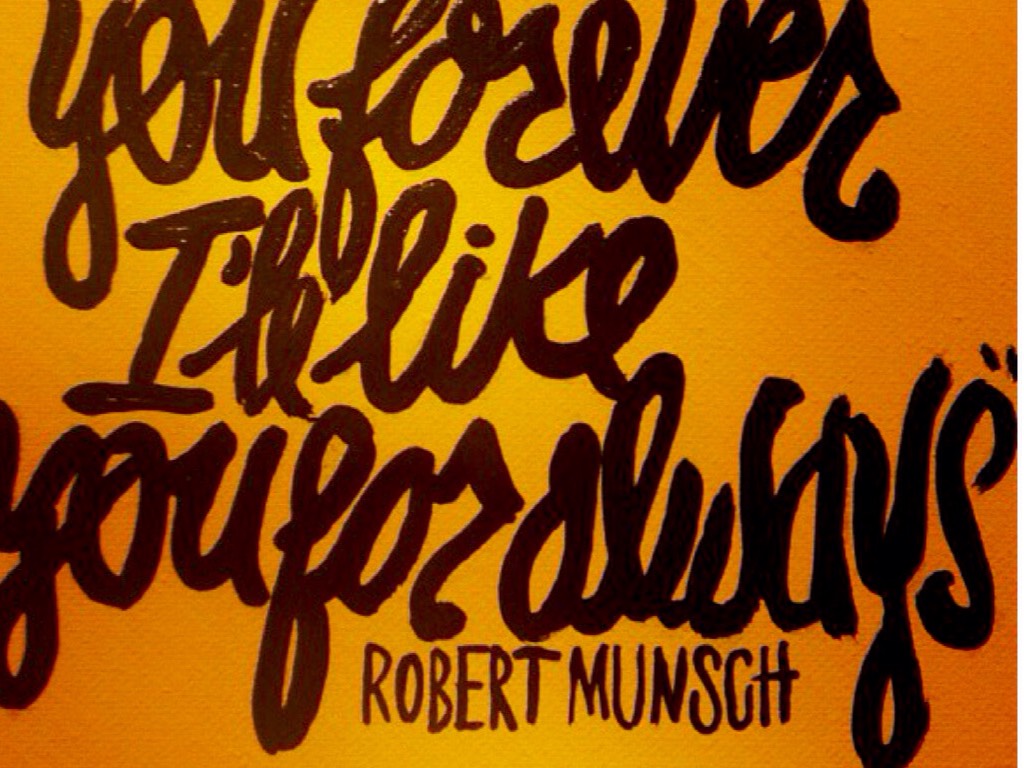 you forever
I'll like
you for always"
ROBERT MUNSCH